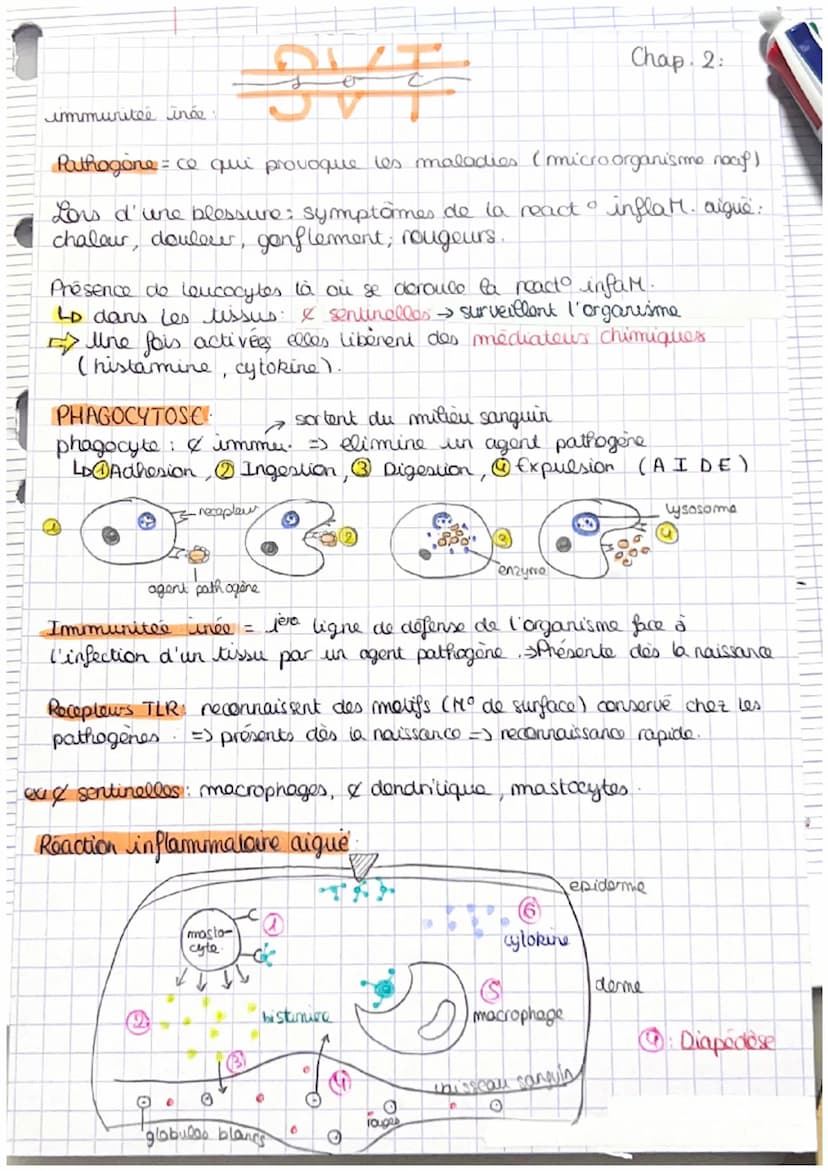 SVT
Chap. 2:
immunitée inée :
Pathogène = ce qui provoque les maladies (microorganisme nocif)
Lors d'une blessure : symptômes de la react° inflaM. aiguë :
chaleur, douleur, gonflement, rougeurs.
Présence de leucocytes là où se déroule la react° infaM.
↳ dans les tissus : ¢ sentinelles → surveillent l'organisme
⇒ Une fois activées elles libèrent des médiateurs chimiques
(histamine, cytokine).
PHAGOCYTOSE
→ sortent du milieu sanguin
phagocyte : ¢ immu. => elimine un agent pathogène
↳ ① Adhesion, ② Ingestion, ③ Digestion, ④ Expulsion (A I D E)
① recepteur ② ③ lysosome ④
enzyme
agent pathogène
Immunitée inée = 1ère ligne de défense de l'organisme face à
l'infection d'un tissu par un agent pathogène. ⇒ Présente dès la naissance
Recepteurs TLR : reconnaissent des motifs (M° de surface) conservé chez les
pathogènes. => présents dès la naissance => reconnaissance rapide.
ex ¢ sentinelles : macrophages, ¢ dendritique, mastocytes.
Réaction inflammatoire aiguë
epiderme
masto-
cyte
①
⑥
cytokine
derme
②
histamine
⑤
macrophage
④ : Diapédèse
③
④
vaisseau sanguin
globules blancs
rouges